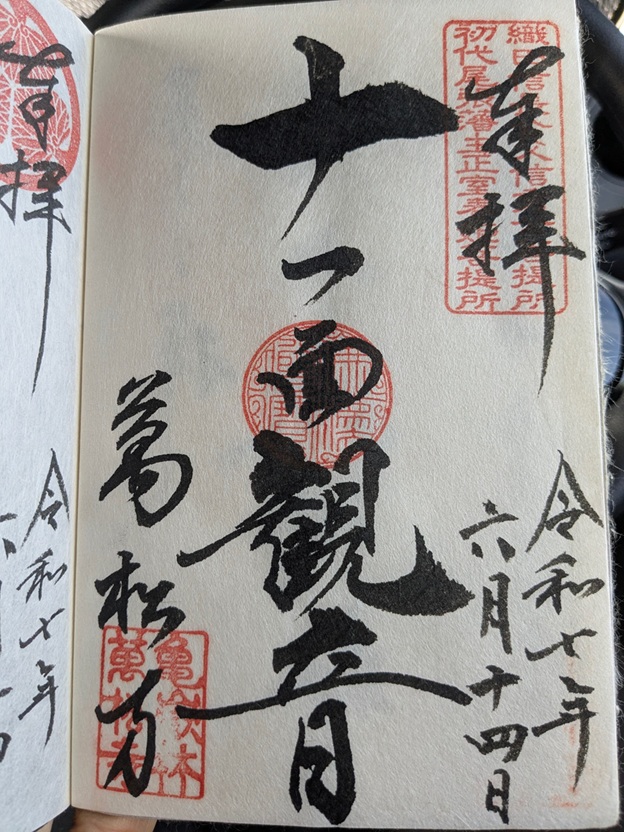 奉拝
織田信 信 提所
初代尾張藩主正室春姫菩提所
令和七年
六月十四日
十一面観音
萬松寺
亀嶽林
萬松寺
奉拝
令和七年